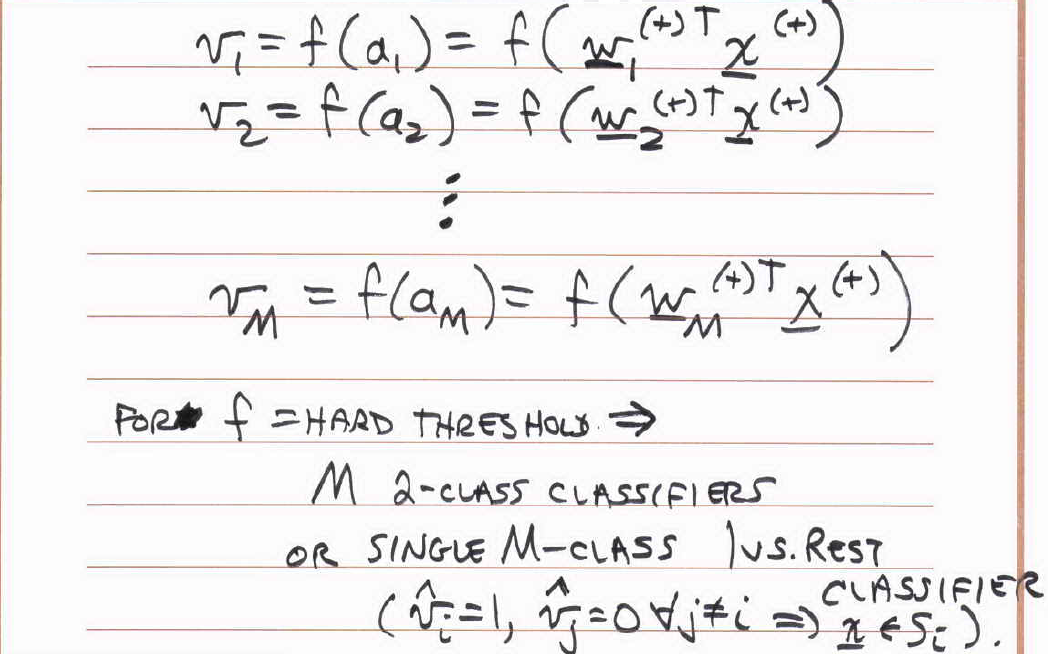 v₁ = f(a₁) = f(w̲₁⁽⁺⁾ᵀ x̲⁽⁺⁾)
v₂ = f(a₂) = f(w̲₂⁽⁺⁾ᵀ x̲⁽⁺⁾)
⋮
v_M = f(a_M) = f(w̲_M⁽⁺⁾ᵀ x̲⁽⁺⁾)
FOR f = HARD THRESHOLD. ⇒
M 2-CLASS CLASSIFIERS
OR SINGLE M-CLASS 1 VS. REST
CLASSIFIER
(v̂ᵢ = 1, v̂ⱼ = 0 ∀ j ≠ i ⇒ x̲ ∈ Sᵢ).